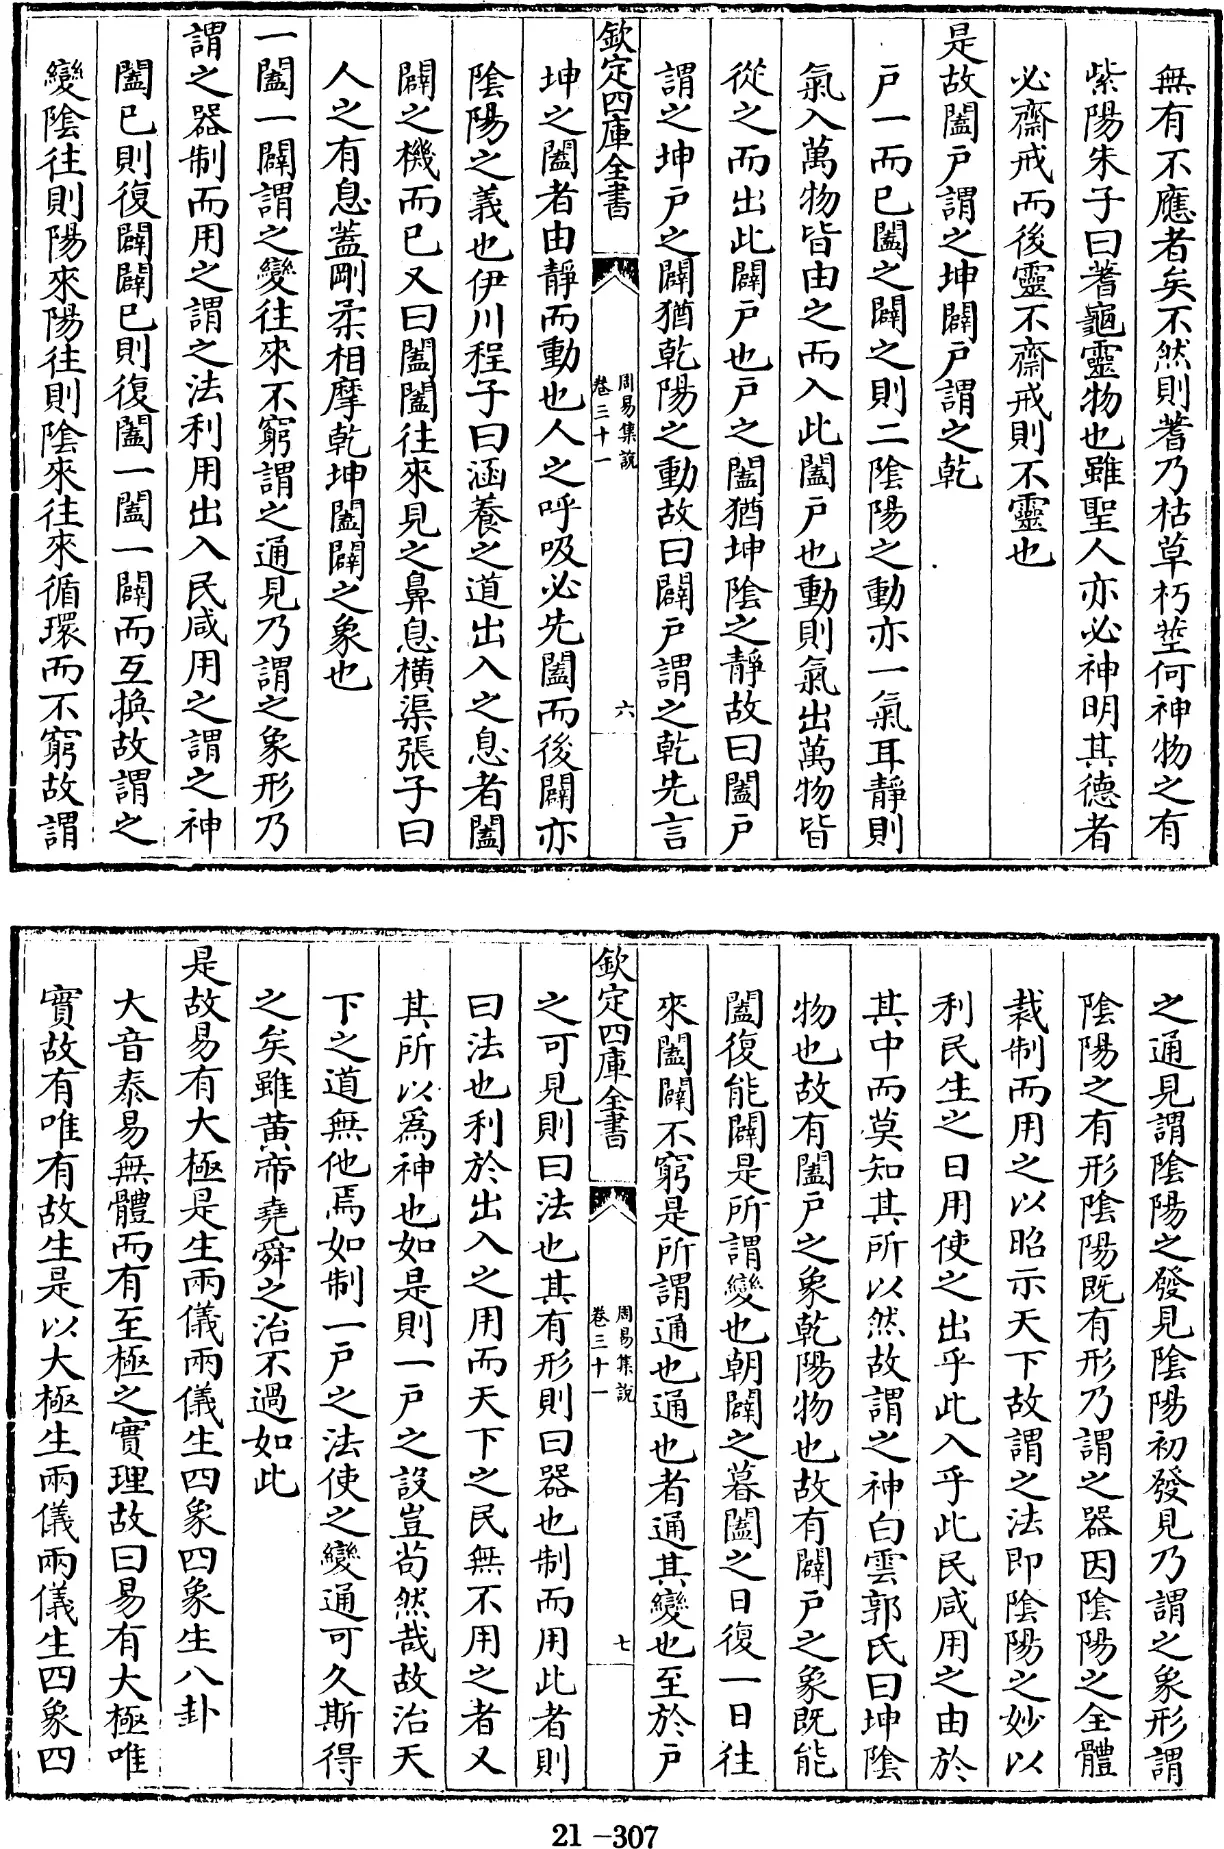 無有不應者矣不然則蓍乃枯草朽莖何神物之有
紫陽朱子曰蓍龜靈物也雖聖人亦必神明其德者
必齋戒而後靈不齋戒則不靈也
是故闔戶謂之坤闢戶謂之乾
戶一而已闔之闢之則二陰陽之動亦一氣耳靜則
氣入萬物皆由之而入此闔戶也動則氣出萬物皆
從之而出此闢戶也戶之闔猶坤陰之靜故曰闔戶
謂之坤戶之闢猶乾陽之動故曰闢戶謂之乾先言
欽定四庫全書
周易集說
卷三十一
六
坤之闔者由靜而動也人之呼吸必先闔而後闢亦
陰陽之義也伊川程子曰涵養之道出入之息者闔
闢之機而已又曰闔闢往來見之鼻息橫渠張子曰
人之有息蓋剛柔相摩乾坤闔闢之象也
一闔一闢謂之變往來不窮謂之通見乃謂之象形乃
謂之器制而用之謂之法利用出入民咸用之謂之神
闔已則復闢闢已則復闔一闔一闢而互換故謂之
變陰往則陽來陽往則陰來往來循環而不窮故謂
之通見謂陰陽之發見陰陽初發見乃謂之象形謂
陰陽之有形陰陽既有形乃謂之器因陰陽之全體
裁制而用之以昭示天下故謂之法即陰陽之妙以
利民生之日用使之出乎此入乎此民咸用之由於
其中而莫知其所以然故謂之神白雲郭氏曰坤陰
物也故有闔戶之象乾陽物也故有闢戶之象既能
闔復能闢是所謂變也朝闢之暮闔之日復一日往
來闔闢不窮是所謂通也通也者通其變也至於戶
欽定四庫全書
周易集說
卷三十一
七
之可見則曰法也其有形則曰器也制而用此者則
曰法也利於出入之用而天下之民無不用之者又
其所以為神也如是則一戶之設豈苟然哉故治天
下之道無他焉如制一戶之法使之變通可久斯得
之矣雖黃帝堯舜之治不過如此
是故易有大極是生兩儀兩儀生四象四象生八卦
大音泰易無體而有至極之實理故曰易有大極唯
實故有唯有故生是以大極生兩儀兩儀生四象四
21-307